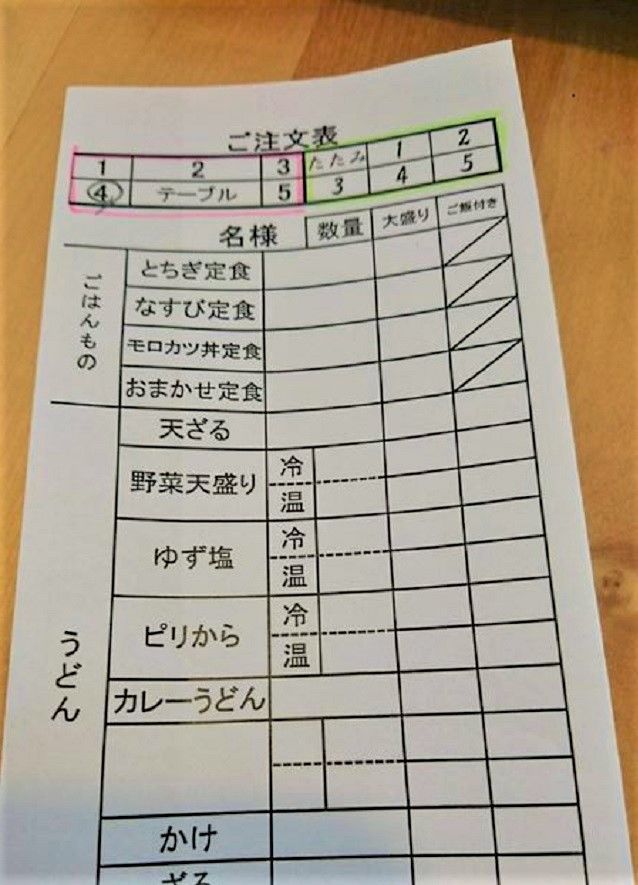 ご注文表
1 2 3 たたみ 1 2
4 テーブル 5 3 4 5
名様 数量 大盛り ご飯付き
ごはんもの
とちぎ定食
なすび定食
モロカツ丼定食
おまかせ定食
うどん
天ざる
野菜天盛り 冷
温
ゆず塩 冷
温
ピリから 冷
温
カレーうどん
かけ
ざる